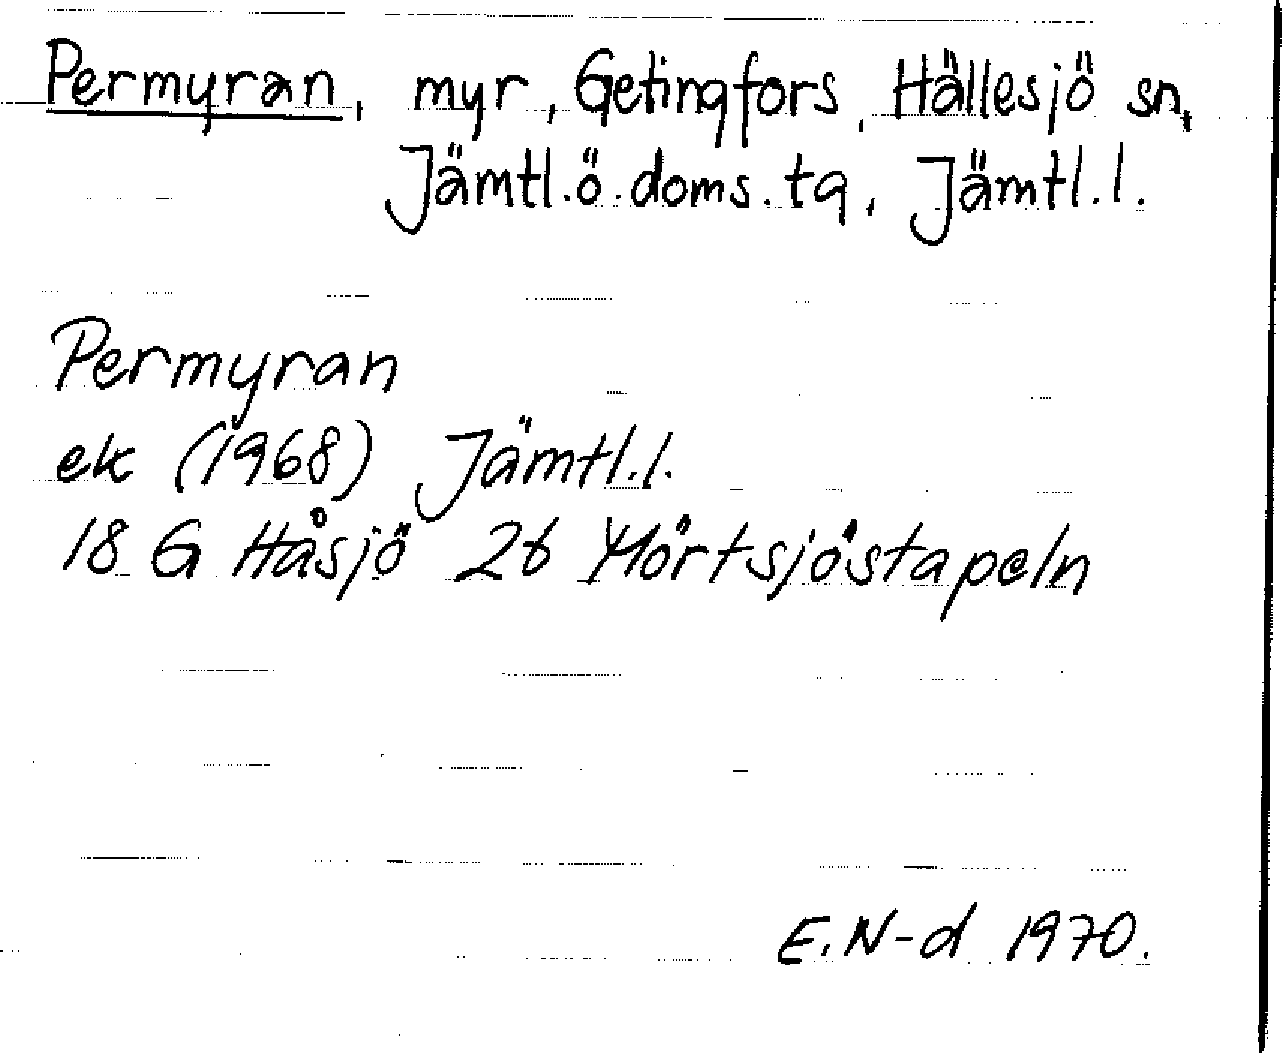 Permyran, myr, Getingfors, Hällesjö sn,
Jämtl.ö.doms.tg, Jämtl.l.
Permyran
ek (1968) Jämtl.l.
18 G Håsjö 2b Mörtsjöstapeln
E.N-d 1970.